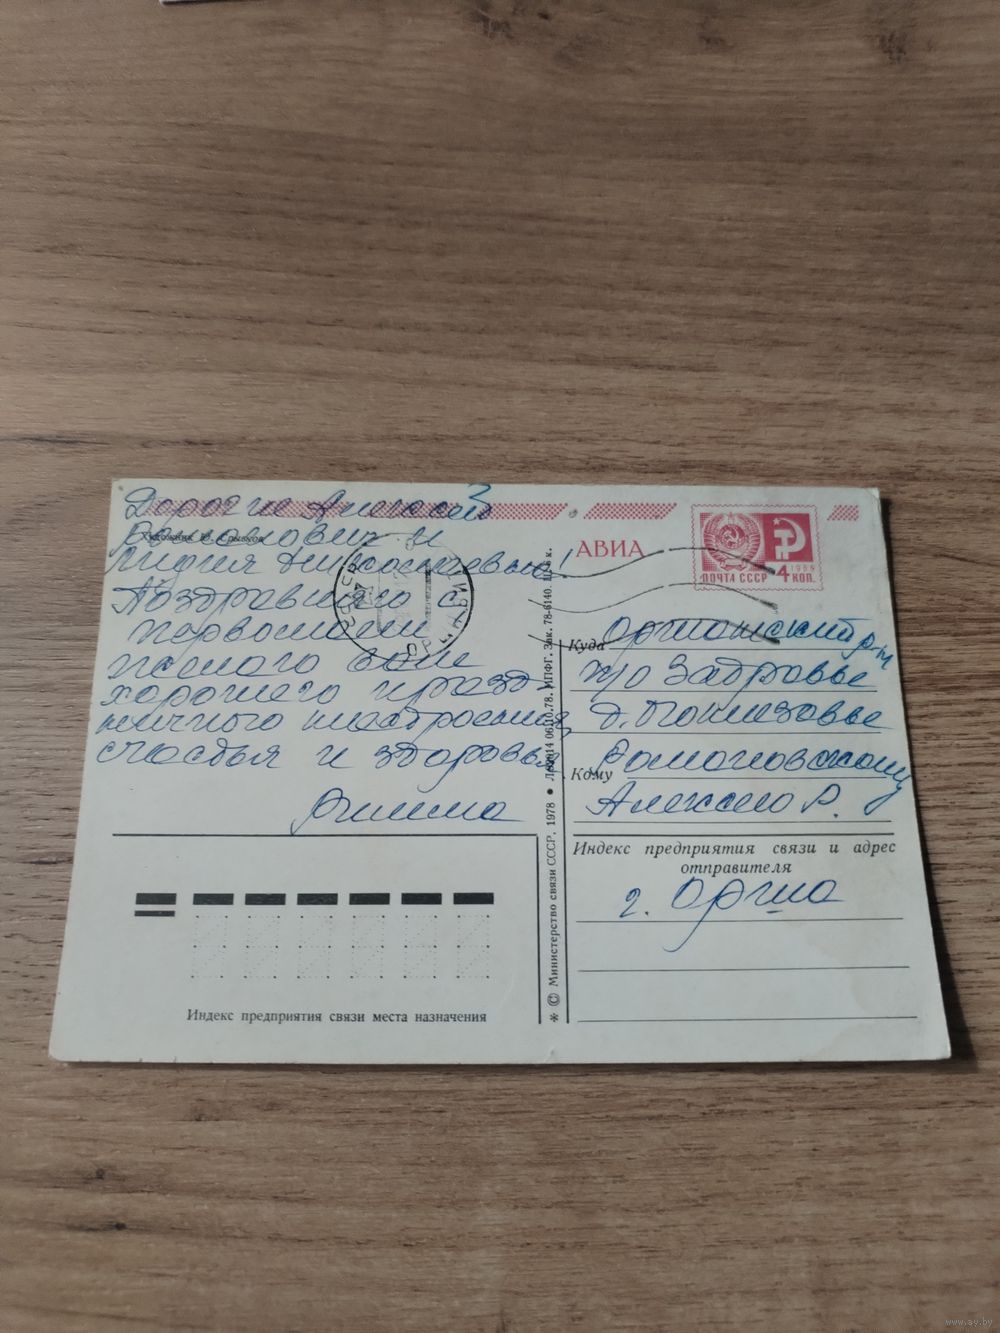 Дорогие Алексей
Романович и
Лидия Дит
Художник Ю. Срывков
Поздравляю с
первомаем
желаю вам
хорошего празд
ничного настроения
счастья и здоровья
Римма
АВИА
1966
ПОЧТА СССР 4 КОП.
Куда Оршанский р-н
п/о Задровье
д.
Кому Романовскому
Алексею Р.
Индекс предприятия связи и адрес
отправителя
г. Орша
Индекс предприятия связи места назначения
* © Министерство связи СССР, 1978 • 06.10.78. ИПФГ. Зак. 78-6140. Ц. 6 к.
www.ay.by